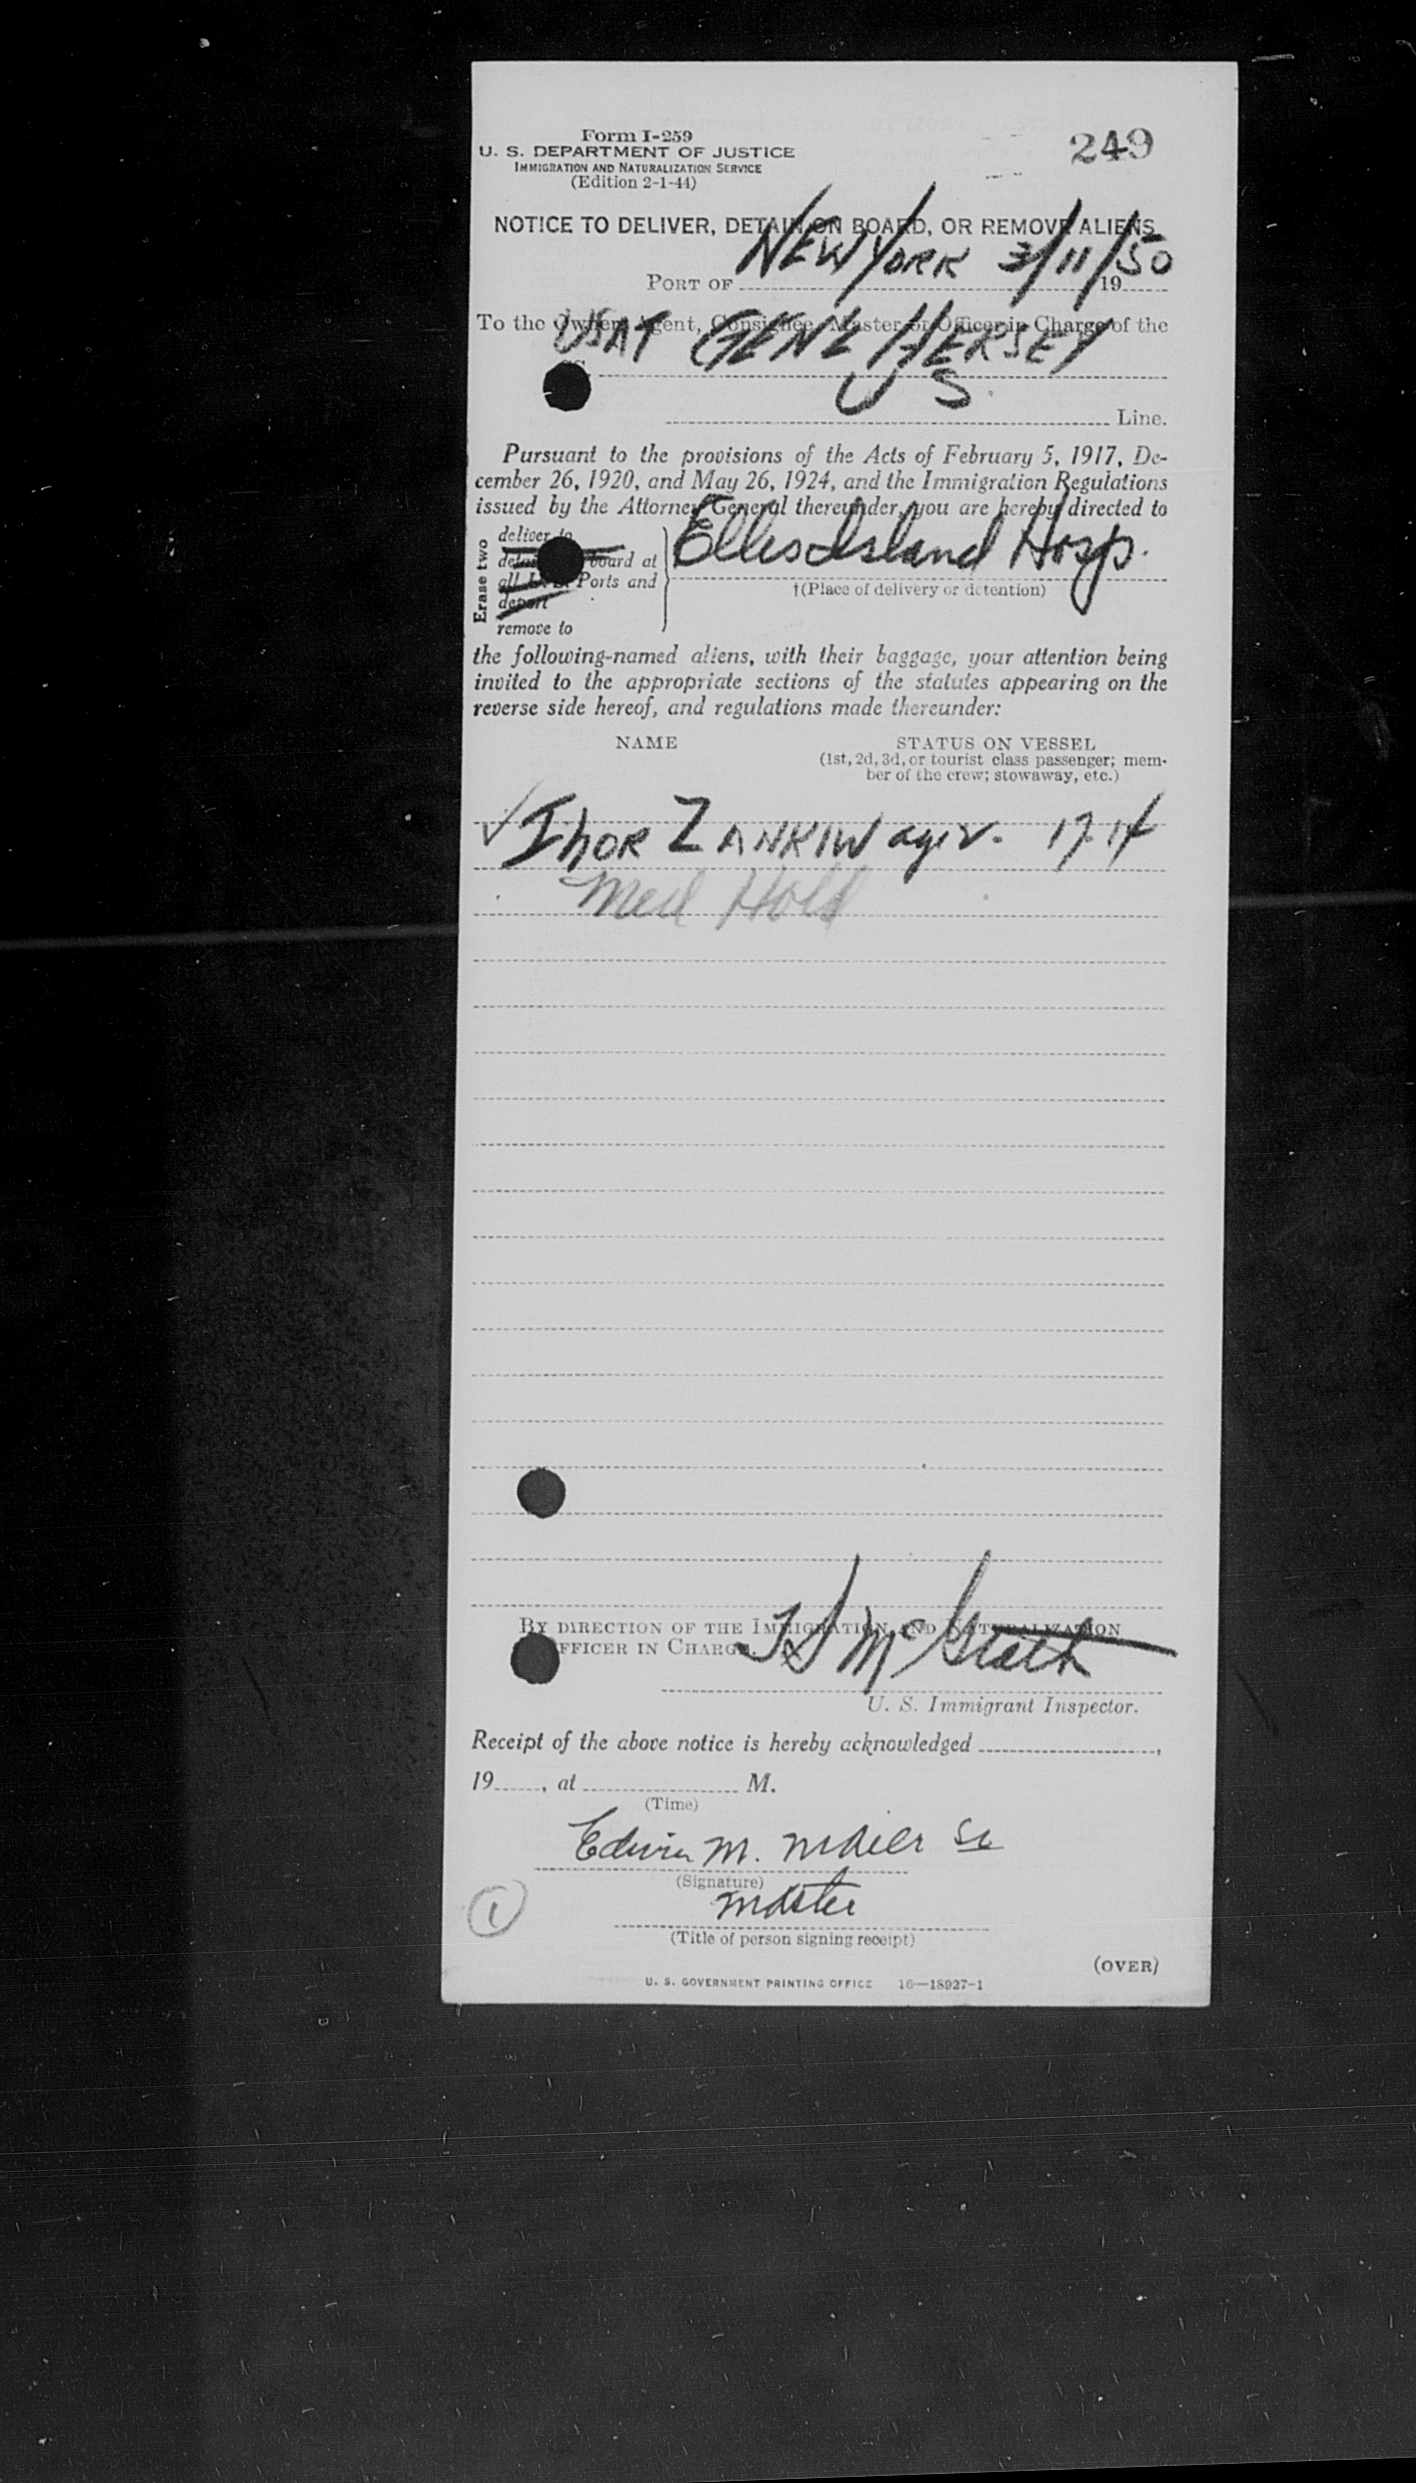 Form I-259
249
U. S. DEPARTMENT OF JUSTICE
IMMIGRATION AND NATURALIZATION SERVICE
(Edition 2-1-44)
NOTICE TO DELIVER, DETAIN ON BOARD, OR REMOVE ALIENS
PORT OF NEW YORK 3/11/50 19
To the Owner, Agent, Consignee, Master or Officer in Charge of the
USAT GENL HERSEY
U S Line.
Pursuant to the provisions of the Acts of February 5, 1917, De-
cember 26, 1920, and May 26, 1924, and the Immigration Regulations
issued by the Attorney General thereunder, you are hereby directed to
Erase two
deliver to
board at
all U. S. Ports and
deport
remove to
Ellis Island Hosp.
†(Place of delivery or detention)
the following-named aliens, with their baggage, your attention being
invited to the appropriate sections of the statutes appearing on the
reverse side hereof, and regulations made thereunder:
NAME
STATUS ON VESSEL
(1st, 2d, 3d, or tourist class passenger; mem-
ber of the crew; stowaway, etc.)
✓ Ihor ZANKIW age 2. 17-14
Med Hold
BY DIRECTION OF THE IMMIGRATION AND NATURALIZATION
OFFICER IN CHARGE.
McGrath
U. S. Immigrant Inspector.
Receipt of the above notice is hereby acknowledged ,
19 , at M.
(Time)
Edwin M. Maier
(Signature)
Master
(Title of person signing receipt)
1
(OVER)
U. S. GOVERNMENT PRINTING OFFICE 16—18927-1